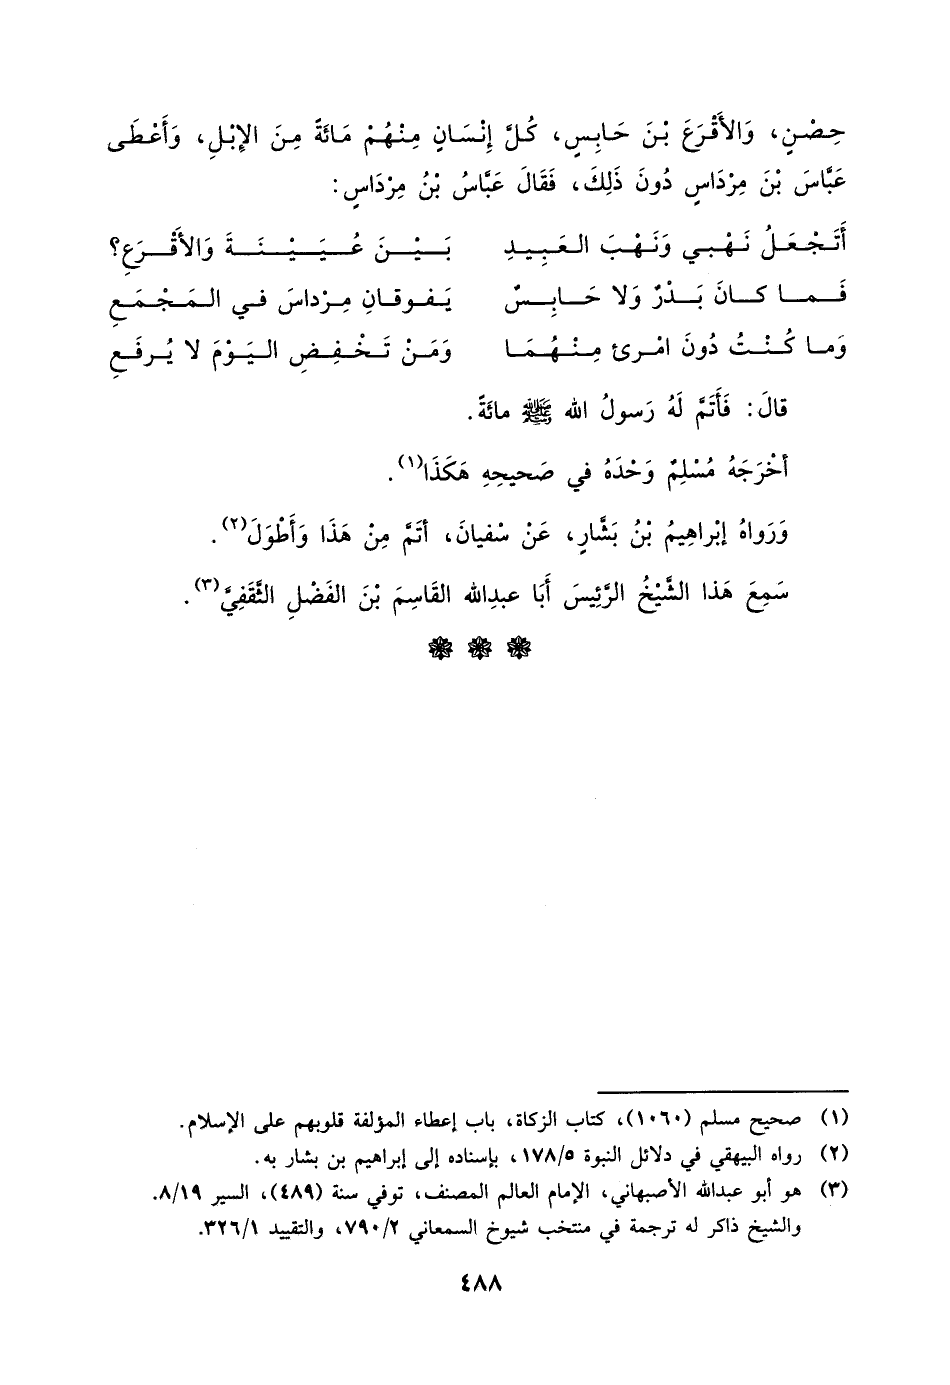 حِصْنٍ، وَالأَقْرَعَ بْنَ حَابِسٍ، كُلَّ إِنْسَانٍ مِنْهُمْ مَائَةً مِنَ الإِبْلِ، وَأَعْطَى
عَبَّاسَ بْنَ مِرْدَاسٍ دُونَ ذَلِكَ، فَقَالَ عَبَّاسُ بْنُ مِرْدَاسٍ:
أَتَجْعَلُ نَهْبِي وَنَهْبَ العَبِيدِ بَيْنَ عُيَيْنَةَ وَالأَقْرَعِ؟
فَما كانَ بَدْرٌ وَلا حَابِسٌ يَفوقانِ مِرْداسَ في المَجْمَعِ
وَما كُنْتُ دُونَ امْرئٍ مِنْهُمَا وَمَنْ تَخْفِضِ اليَوْمَ لا يُرفَعِ
قالَ: فَأَتَمَّ لَهُ رَسولُ الله ﷺ مائَةً.
أخْرَجَهُ مُسْلِمٌ وَحْدَهُ في صَحيحِهِ هَكَذَا(١).
وَرَواهُ إبْراهِيمُ بْنُ بَشَّارٍ، عَنْ سُفيانَ، أتَمَّ مِنْ هَذَا وَأَطْوَلَ(٢).
سَمِعَ هَذا الشَّيْخُ الرَّئِيسَ أَبَا عبدِالله القَاسِمَ بْنَ الفَضْلِ الثَّقَفِيَّ(٣).
(١) صحيح مسلم (١٠٦٠)، كتاب الزكاة، باب إعطاء المؤلفة قلوبهم على الإسلام.
(٢) رواه البيهقي في دلائل النبوة ١٧٨/٥، بإسناده إلى إبراهيم بن بشار به.
(٣) هو أبو عبدالله الأصبهاني، الإمام العالم المصنف، توفي سنة (٤٨٩)، السير ٨/١٩.
والشيخ ذاكر له ترجمة في منتخب شيوخ السمعاني ٧٩٠/٢، والتقييد ٣٢٦/١.
٤٨٨